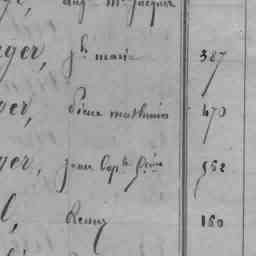 aug. M. Jacques
ger, jh marie 387
ger, Pierre mathurin 470
ger, jean Bapte 562
l, Remy 160